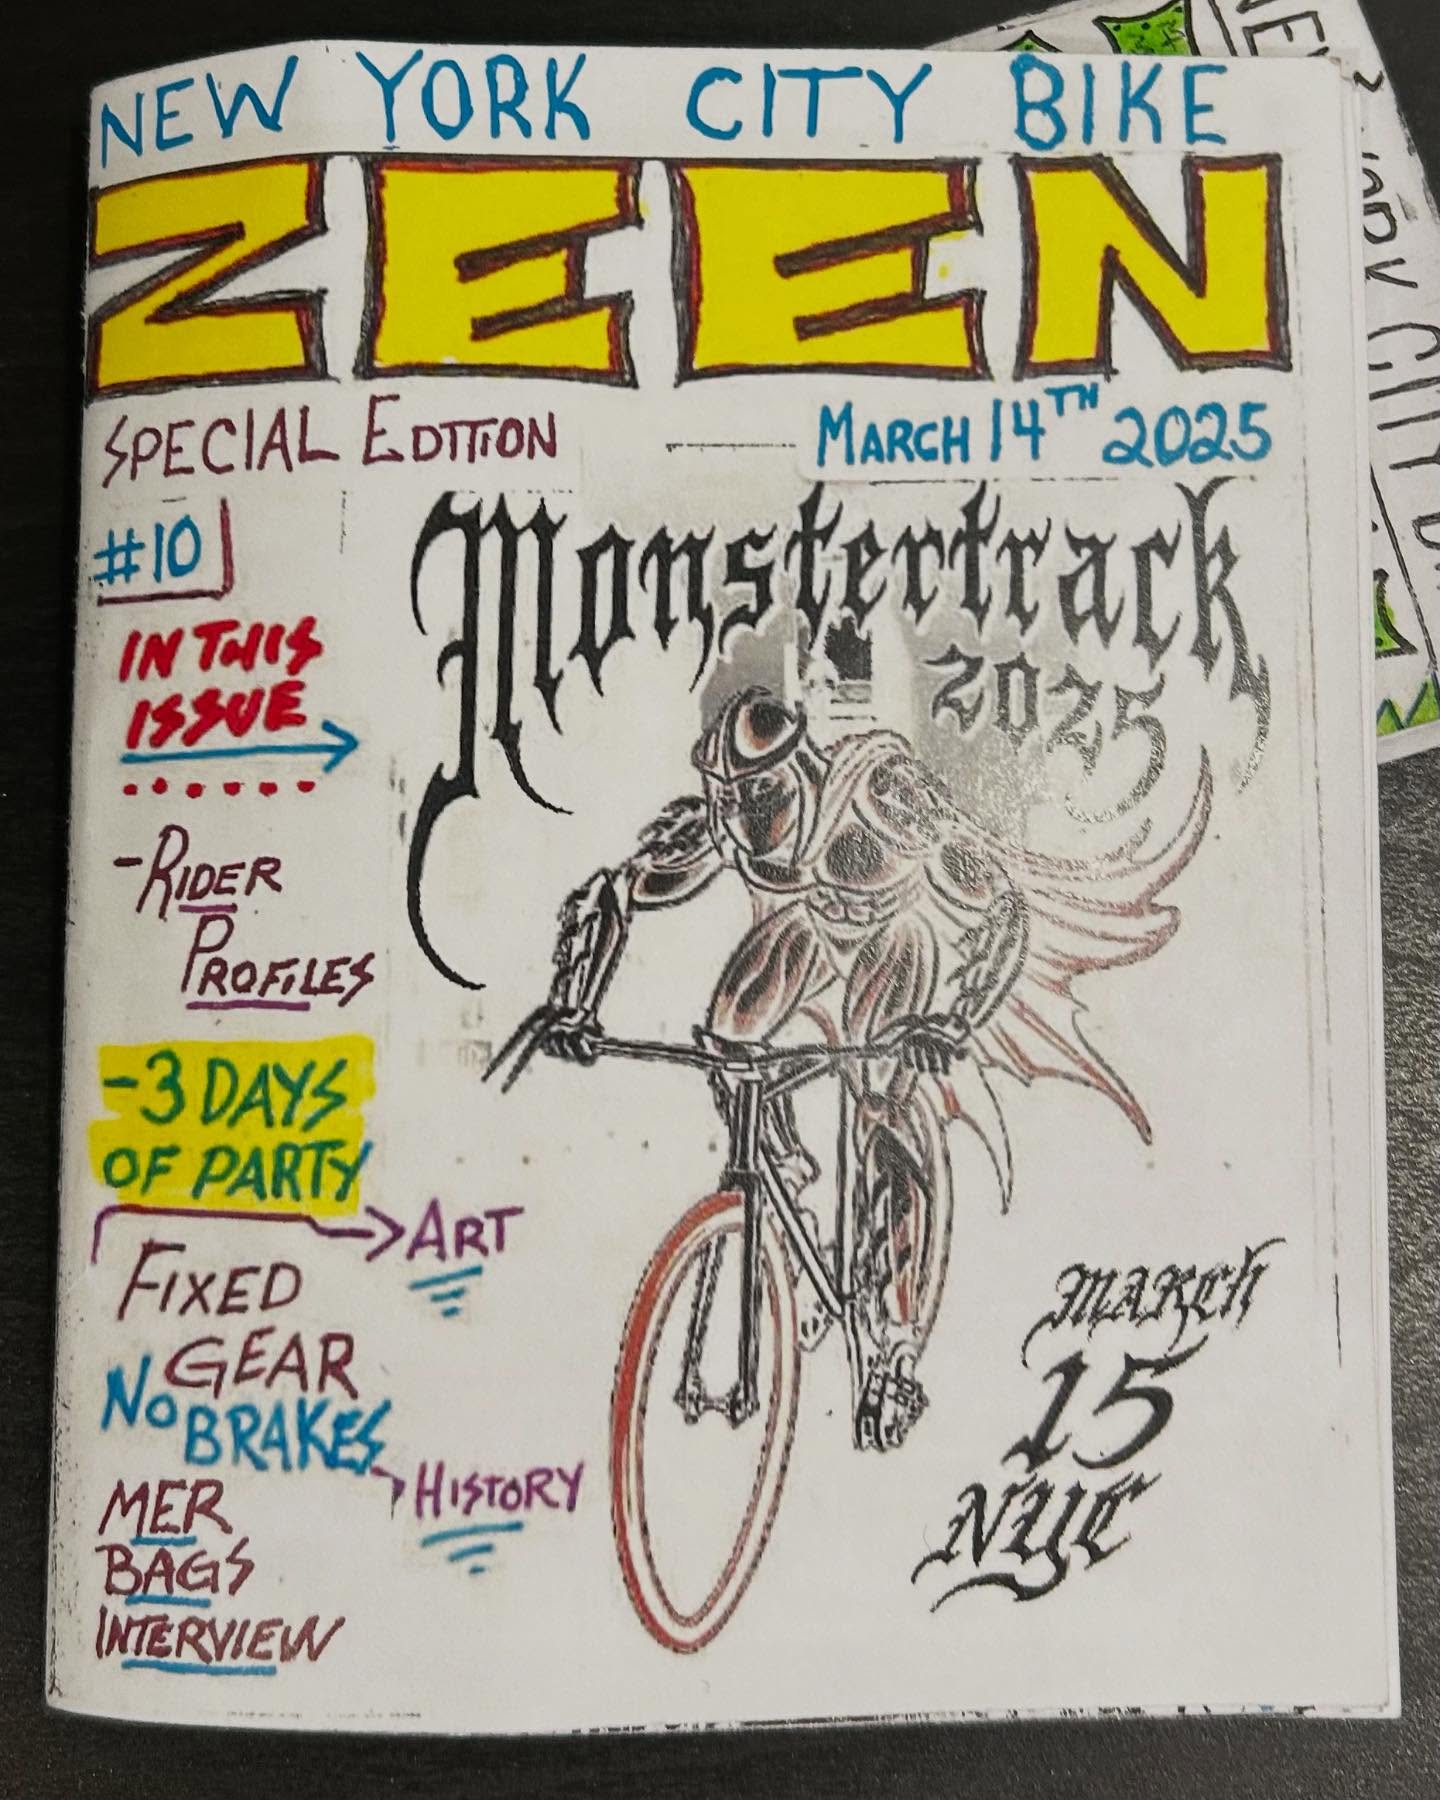 NEW YORK CITY BIKE
ZEEN
SPECIAL EDITION
MARCH 14TH 2025
#10
IN THIS
ISSUE
Monstertrack
2025
-RIDER
PROFILES
-3 DAYS
OF PARTY
ART
FIXED
GEAR
NO BRAKES
HISTORY
MER
BAGS
INTERVIEW
MARCH
15
NYC
CITY